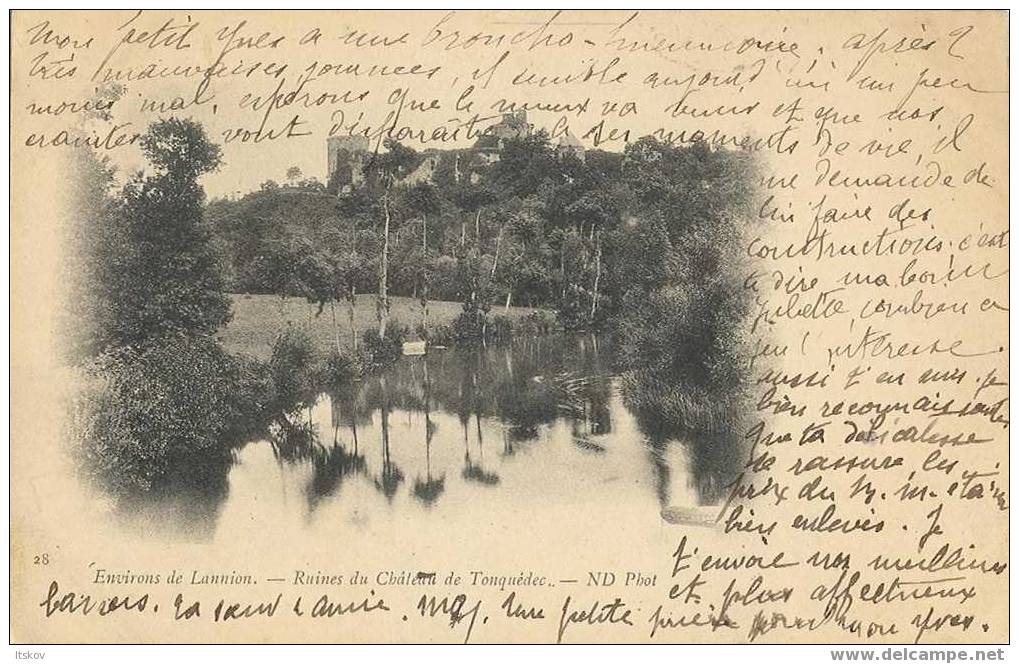 Mon petit Yves a une broncho-pneumonie. après 2
très mauvaises journées, il semble aujourd'hui un peu
moins mal, espérons que le mieux va venir et que nos
craintes vont disparaître. à ses moments de vie, il
me demande de
lui faire des
constructions. c'est
te dire ma bonne
Juliette, combien ce
jeu l'intéresse.
aussi t'en suis-je
bien reconnaissante
que ta délicatesse
se rassure, les
prix du
bien enlevés. Je
t'envoie nos meilleurs
et plus affectueux
baisers. Ta sœur et amie. Une petite prière pour mon Yves.
28
Environs de Lannion. — Ruines du Château de Tonquédec. — ND Phot
Itskov
www.delcampe.net